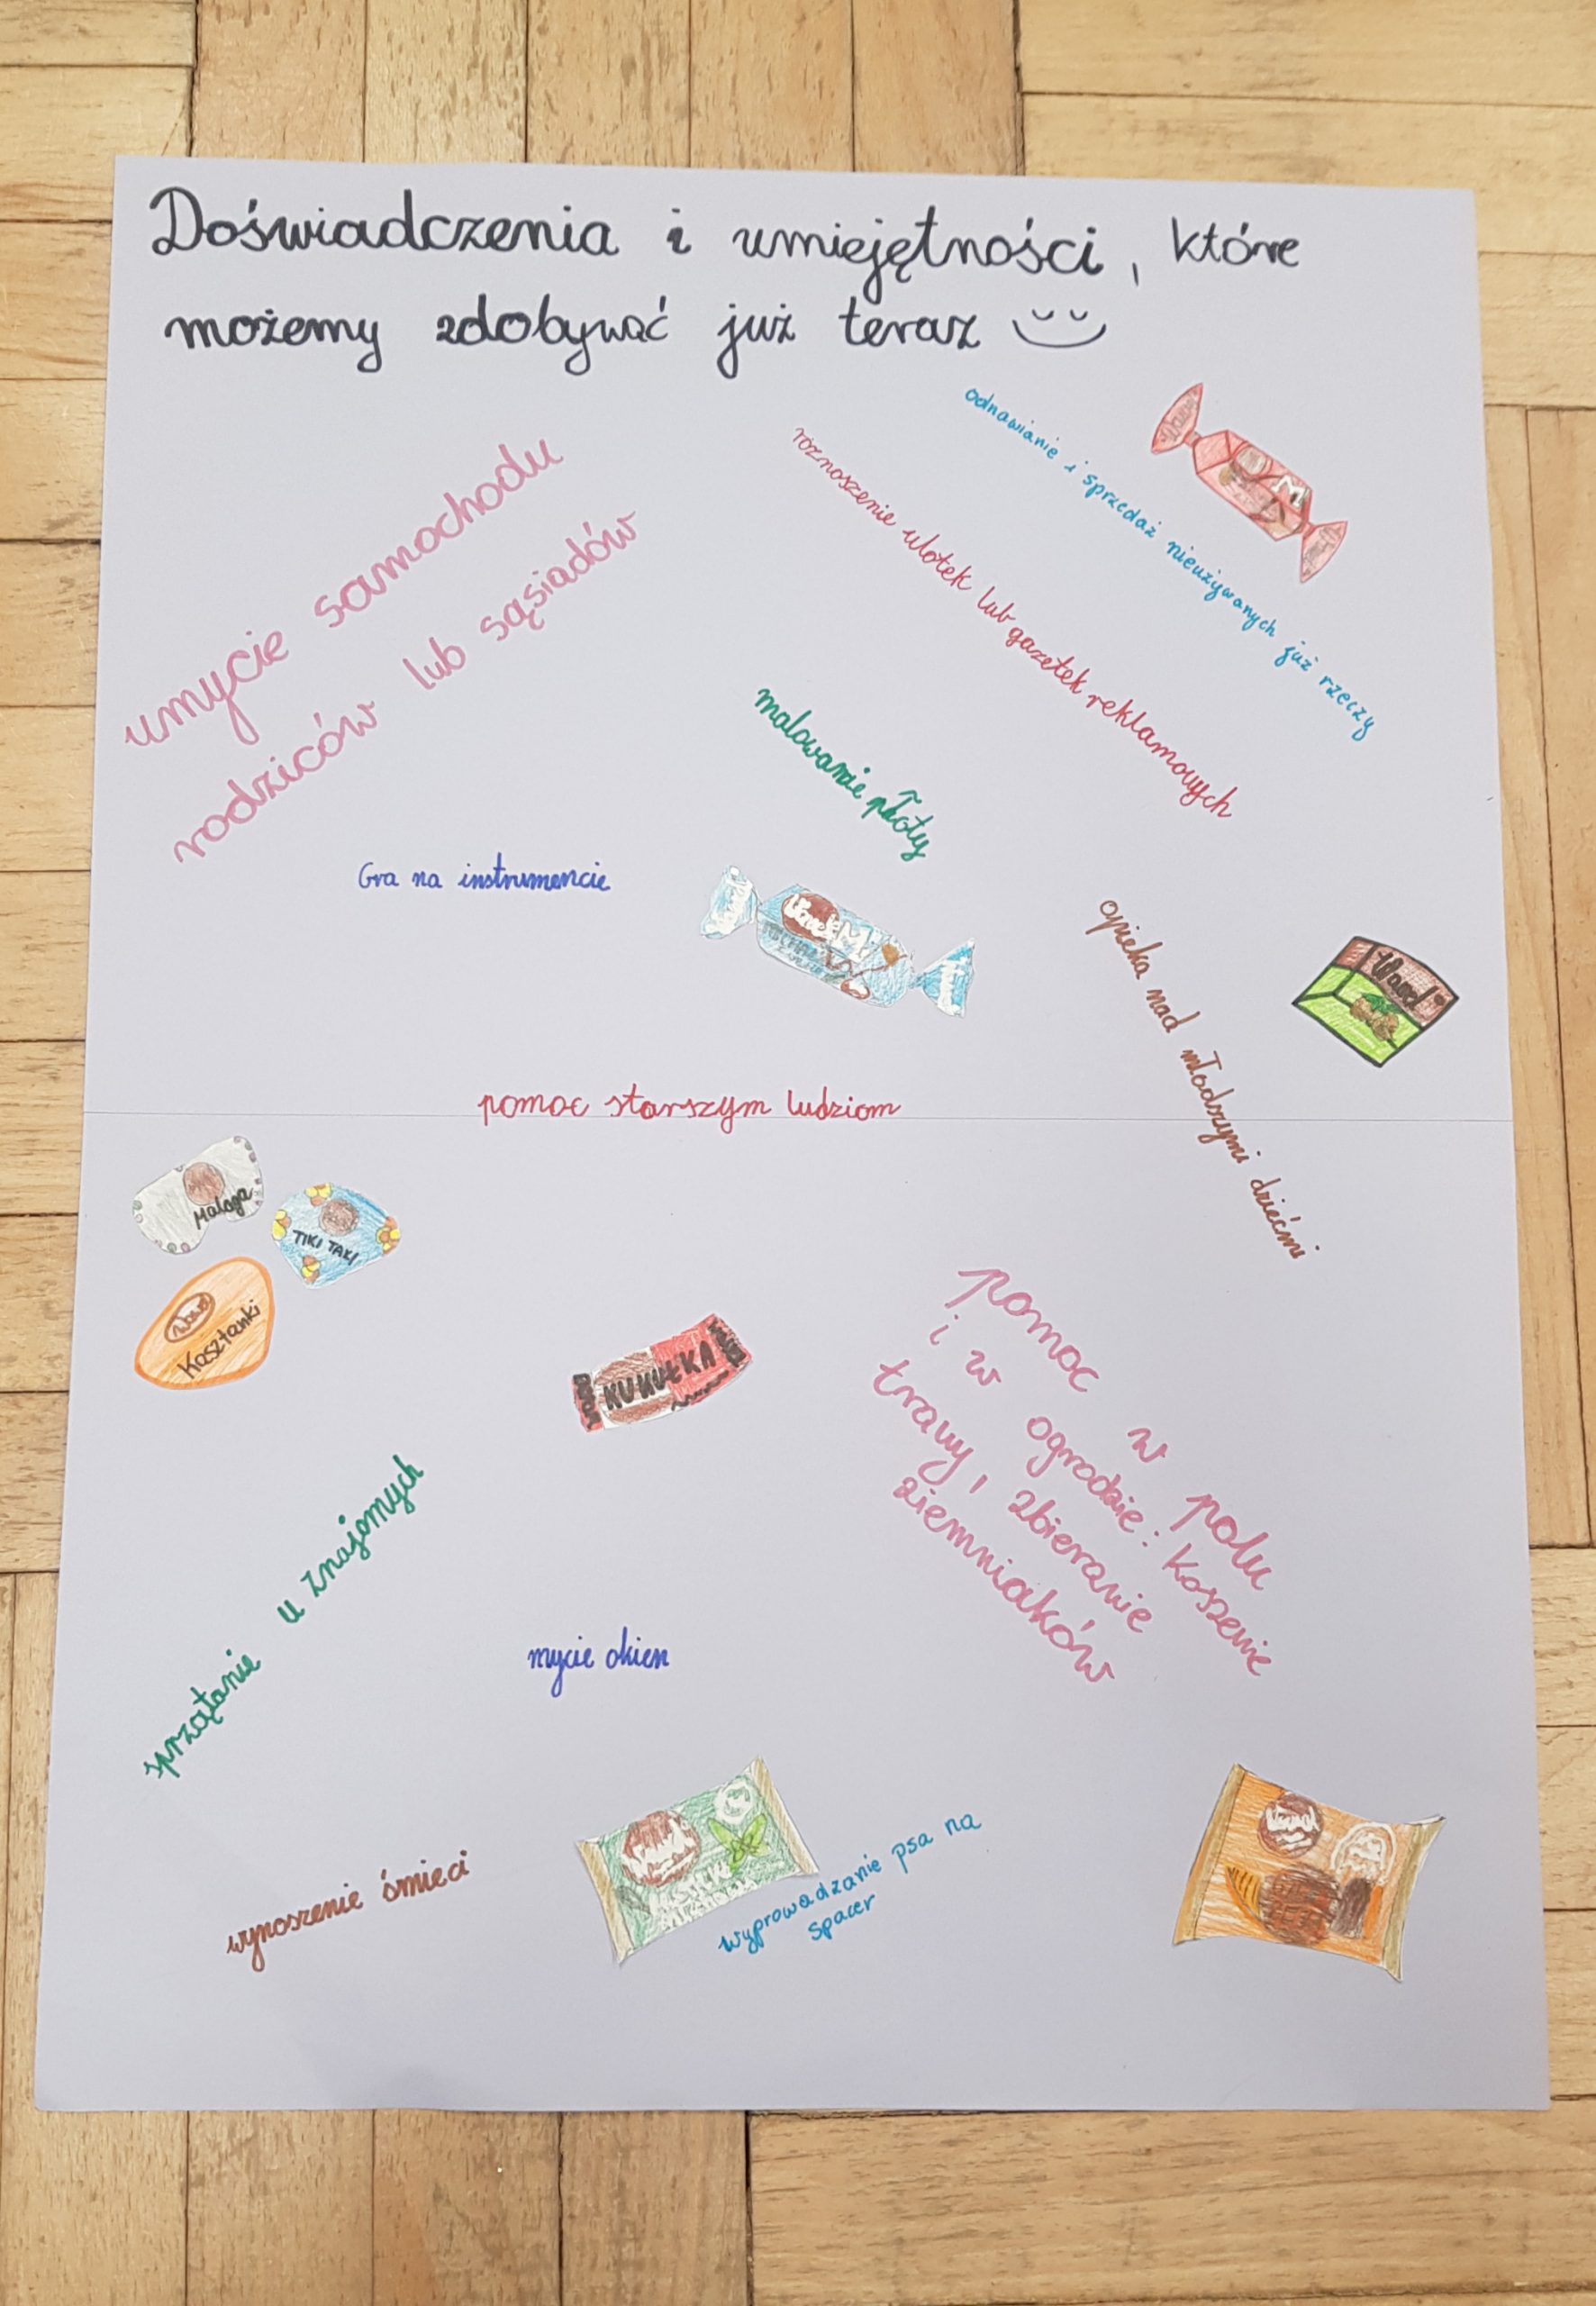 Doświadczenia i umiejętności, które
możemy zdobywać już teraz
odnawianie i sprzedaż nieużywanych już rzeczy
roznoszenie ulotek lub gazetek reklamowych
umycie samochodu
rodziców lub sąsiadów
malowanie płoty
Gra na instrumencie
opieka nad młodszymi dziećmi
Wawel
pomoc starszym ludziom
Malaga
TIKI TAKI
Wawel
Kasztanki
KUKUŁKA
pomoc w polu
i w ogrodzie: koszenie
trawy, zbieranie
ziemniaków
sprzątanie u znajomych
mycie okien
wynoszenie śmieci
wyprowadzanie psa na
spacer
Wawel